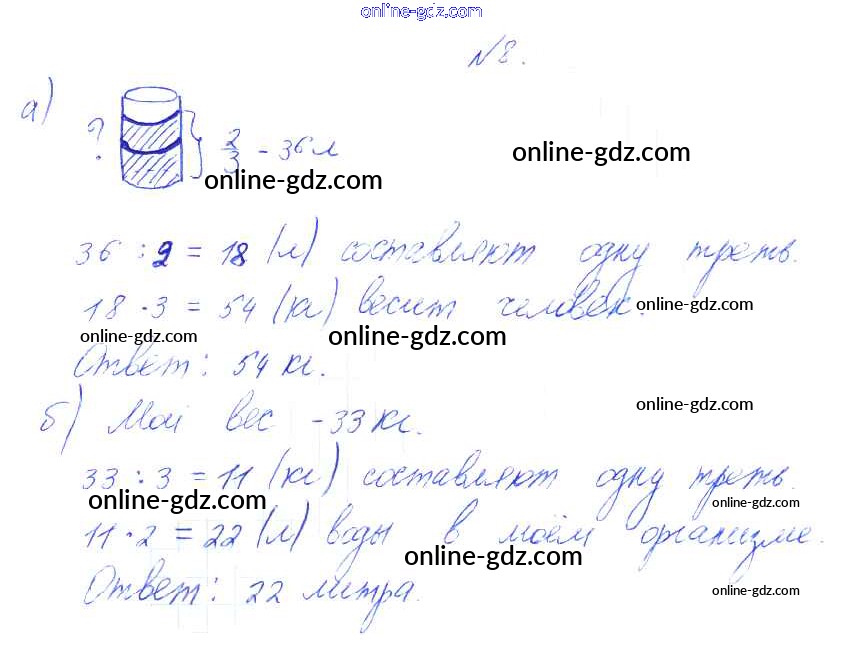 online-gdz.com
№8.
а)
? } 2/3 - 36 л
online-gdz.com
online-gdz.com
36 : 2 = 18 (л) составляют одну треть.
18 · 3 = 54 (кг) весит человек.
online-gdz.com
online-gdz.com
online-gdz.com
Ответ: 54 кг.
online-gdz.com
б) Мой вес - 33 кг.
33 : 3 = 11 (кг) составляют одну треть.
online-gdz.com
online-gdz.com
11 · 2 = 22 (л) воды в моём организме.
online-gdz.com
Ответ: 22 литра.
online-gdz.com